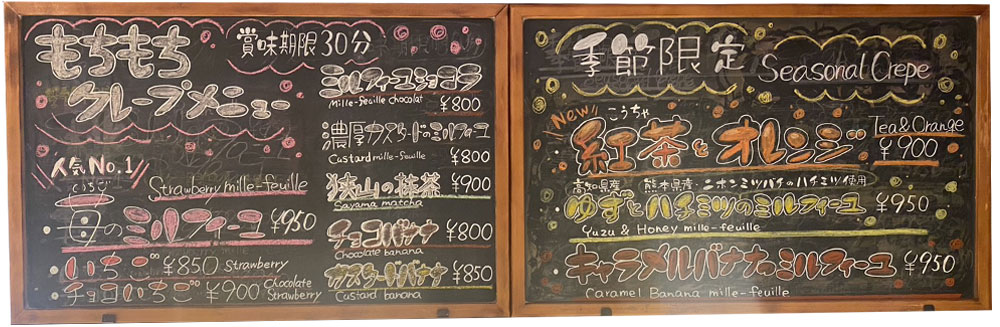 もちもち
クレープメニュー
賞味期限30分
人気No.1
いちご
Strawberry mille-feuille
苺のミルフィーユ ¥950
いちご ¥850 Strawberry
チョコいちご ¥900 Chocolate Strawberry
ミルフィーユショコラ
Mille-feuille chocolat ¥800
濃厚カスタードのミルフィーユ
Custard mille-feuille ¥800
狭山の抹茶 ¥900
Sayama matcha
チョコバナナ ¥800
Chocolate banana
カスタードバナナ ¥850
Custard banana
季節限定
Seasonal Crepe
New
こうちゃ
紅茶とオレンジ
Tea & Orange
¥900
高知県産 熊本県産・ニホンミツバチのハチミツ使用
ゆずとハチミツのミルフィーユ ¥950
Yuzu & Honey mille-feuille
キャラメルバナナのミルフィーユ ¥950
Caramel Banana mille-feuille